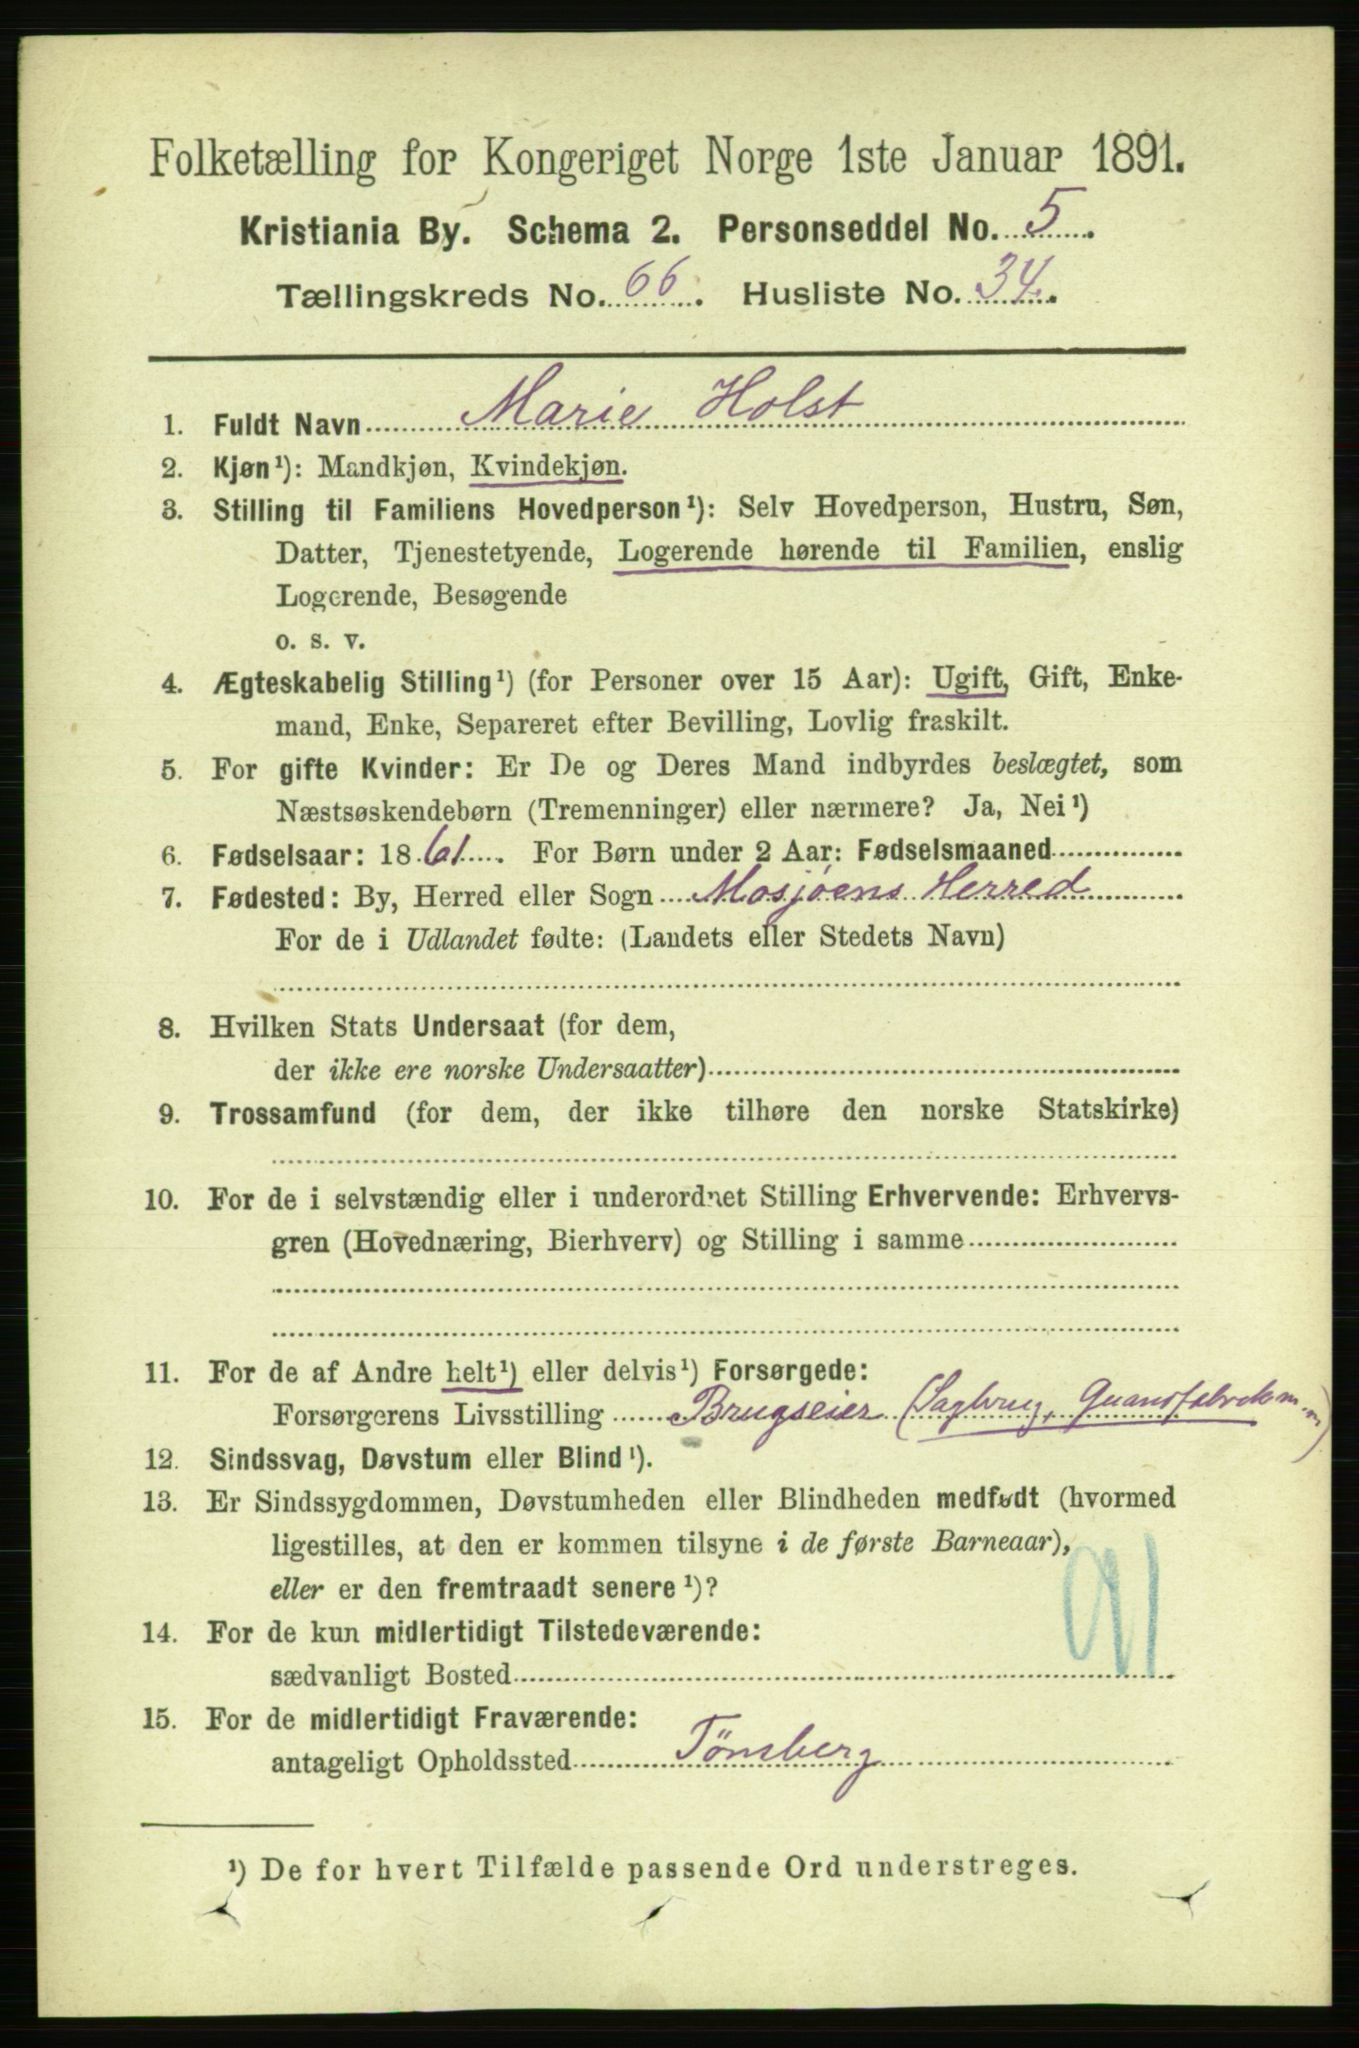 Folketælling for Kongeriget Norge 1ste Januar 1891.
Kristiania By. Schema 2. Personseddel No. 5.
Tællingskreds No. 66. Husliste No. 34.
1. Fuldt Navn Marie Holst
2. Kjøn¹): Mandkjøn, Kvindekjøn.
3. Stilling til Familiens Hovedperson¹): Selv Hovedperson, Hustru, Søn,
Datter, Tjenestetyende, Logerende hørende til Familien, enslig
Logerende, Besøgende
o. s. v.
4. Ægteskabelig Stilling¹) (for Personer over 15 Aar): Ugift, Gift, Enke-
mand, Enke, Separeret efter Bevilling, Lovlig fraskilt.
5. For gifte Kvinder: Er De og Deres Mand indbyrdes beslægtet, som
Næstsøskendebørn (Tremenninger) eller nærmere? Ja, Nei¹)
6. Fødselsaar: 1861. For Børn under 2 Aar: Fødselsmaaned
7. Fødested: By, Herred eller Sogn Mosjøens Herred
For de i Udlandet fødte: (Landets eller Stedets Navn)
8. Hvilken Stats Undersaat (for dem,
der ikke ere norske Undersaatter)
9. Trossamfund (for dem, der ikke tilhøre den norske Statskirke)
10. For de i selvstændig eller i underordnet Stilling Erhvervende: Erhvervs-
gren (Hovednæring, Bierhverv) og Stilling i samme
11. For de af Andre helt¹) eller delvis¹) Forsørgede:
Forsørgerens Livsstilling Brugseier (Sagbrug, Guanofabrik m.m)
12. Sindssvag, Døvstum eller Blind¹).
13. Er Sindssygdommen, Døvstumheden eller Blindheden medfødt (hvormed
ligestilles, at den er kommen tilsyne i de første Barneaar),
eller er den fremtraadt senere¹)?
91
14. For de kun midlertidigt Tilstedeværende:
sædvanligt Bosted
15. For de midlertidigt Fraværende:
antageligt Opholdssted Tønsberg
¹) De for hvert Tilfælde passende Ord understreges.